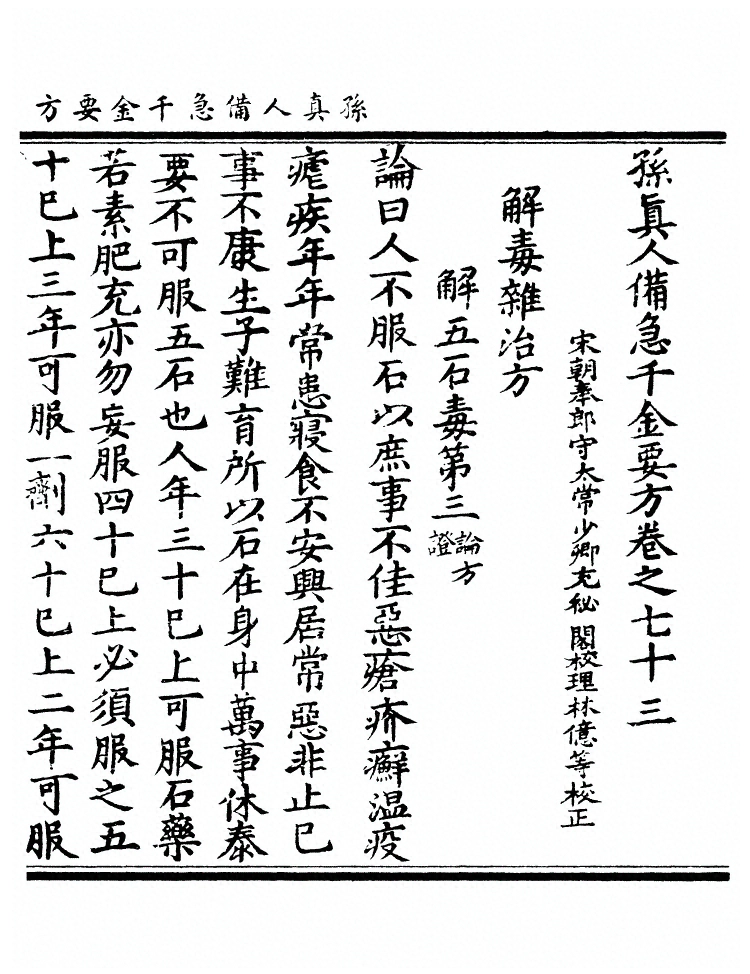 孫真人備急千金要方
孫眞人備急千金要方卷之七十三
宋朝奉郎守太常少卿充秘閣校理林億等校正
解毒雜治方
解五石毒第三論方證
論曰人不服石以庶事不佳惡瘡疥癬温疫
瘧疾年年常患寢食不安興居常惡非止已
事不康生子難育所以石在身中萬事休泰
要不可服五石也人年三十已上可服石藥
若素肥充亦勿妄服四十已上必須服之五
十已上三年可服一劑六十已上二年可服